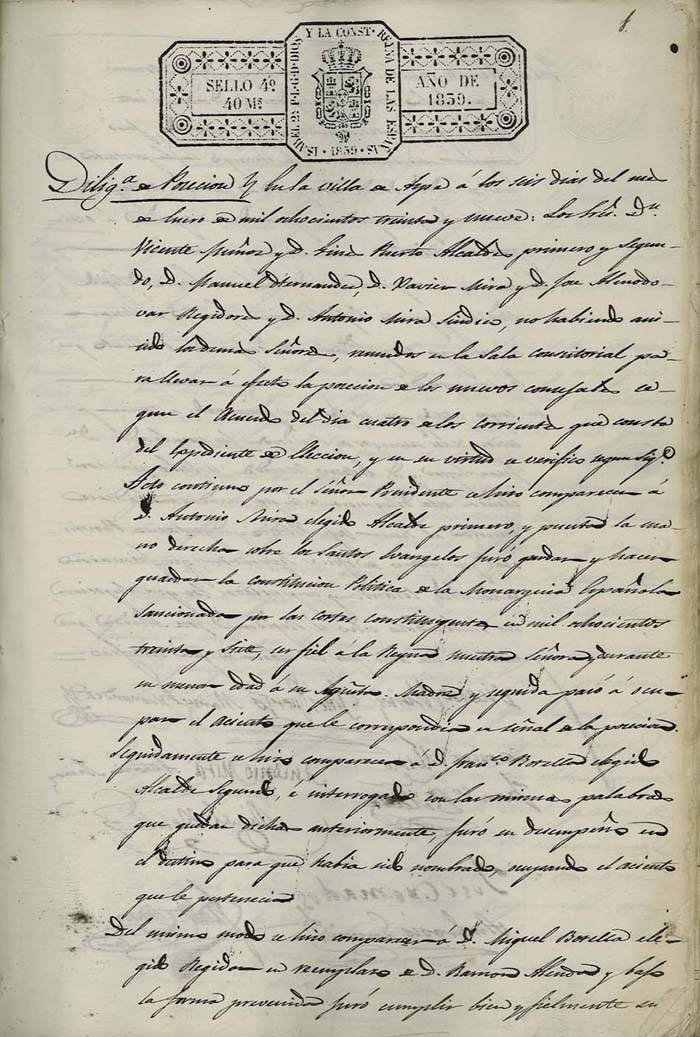 1.
ISABEL 2ª P. L. G. D. DIOS Y LA CONST. REYNA DE LAS ESPAÑAS
SELLO 4º
40 Ms
AÑO DE
1839.
1839
Diligª de Posecion En la villa de Aspe á los seis dias del mes
de Enero de mil ochocientos treinta y nueve: Los Srs. Dn.
Vicente Muñoz y D. Ginés Puerto Alcaldes primero y segun-
do, D. Manuel Hernandez, D. Xavier Mira y D. Jose Almodo-
var Regidores y D. Antonio Mira Sindico, no habiendo asis-
tido los demas Señores, reunidos en la Sala Consistorial pa-
ra llevar á efecto la posecion de los nuevos concejales se-
gun el Acuerdo del dia cuatro de los corrientes que consta
del Espediente de Eleccion, y en su virtud se verificó segun sigue
Acto continuo por el Señor Presidente se hizo comparecer á
D. Antonio Mira elegido Alcalde primero, y puesta la ma-
no derecha sobre los Santos Evangelios juró guardar y hacer
guardar la Constitucion Politica de la Monarquia Española
sancionada por las Cortes constituyentes en mil ochocientos
treinta y siete, ser fiel á la Reyna nuestra Señora y durante
su menor edad á su Agusta Madre y seguida pasó á ocu-
par el aciento que le correspondia en señal de la posecion.
Seguidamente se hizo comparecer á D. Franco Borella elegido
Alcalde Segundo, é interrogado con las mismas palabras
que quedan dichas anteriormente, juró su desempeño en
el destino para que habia sido nombrado ocupando el aciento
que le pertenecia
Del mismo modo se hizo comparecer á D. Miguel Borella ele-
gido Regidor en remplazo de D. Ramon y bajo
la forma prevenida juró cumplir bien y fielmente su